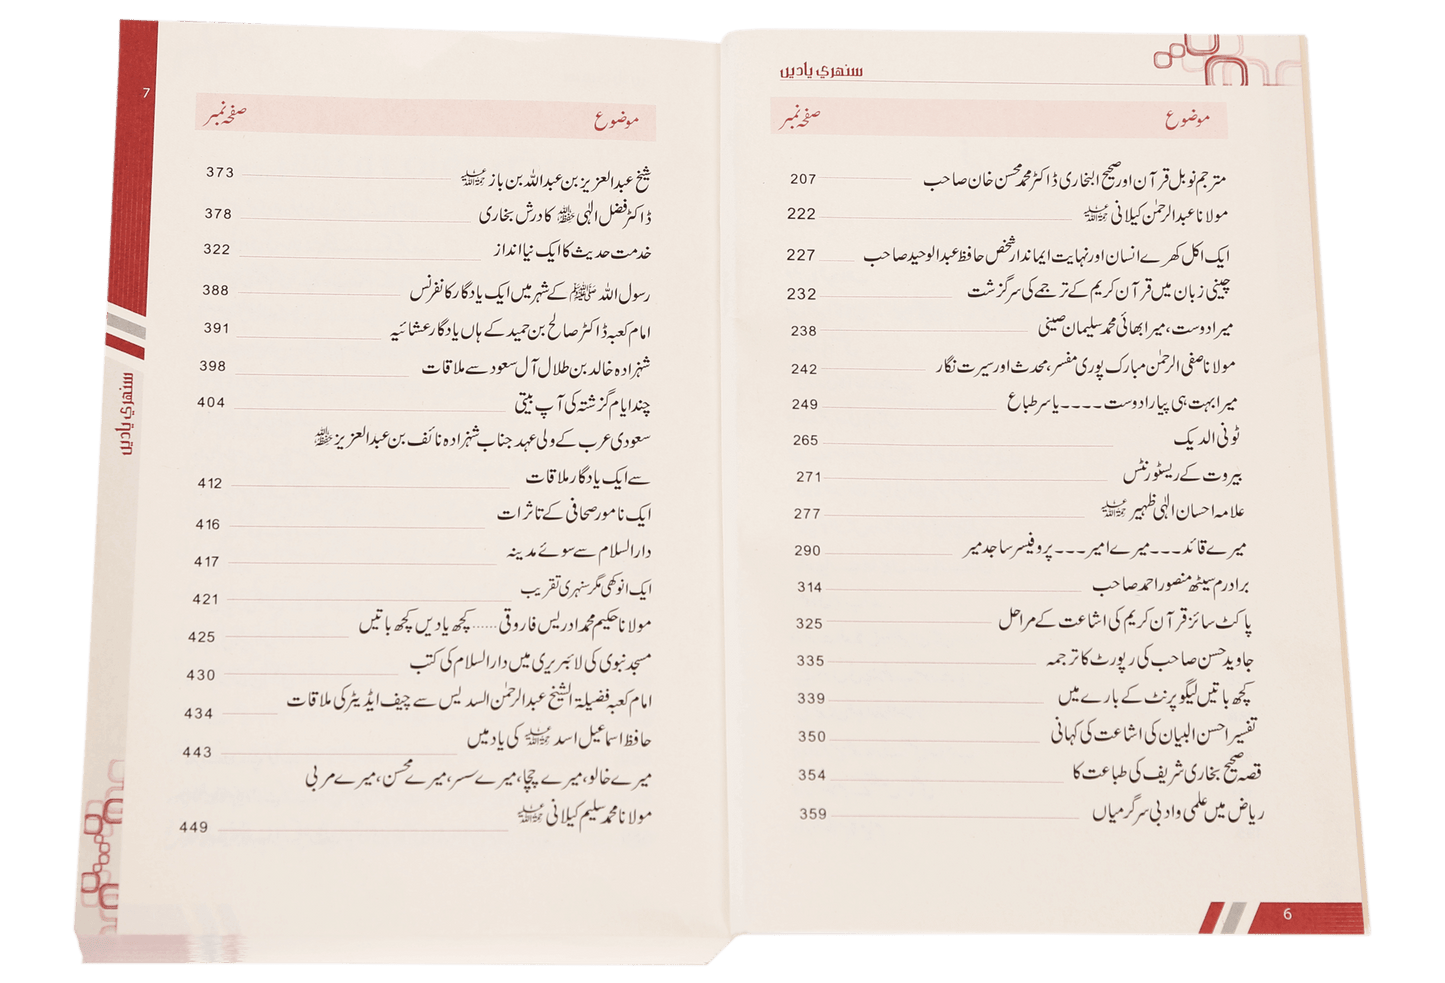 سنہری یادیں
موضوع صفحہ نمبر
مترجم نوبل قرآن اور صحیح البخاری ڈاکٹر محمد محسن خان صاحب 207
مولانا عبدالرحمٰن کیلانی رحمۃ اللہ علیہ 222
ایک اکل کھرے انسان اور نہایت ایماندار شخص حافظ عبدالوحید صاحب 227
چینی زبان میں قرآن کریم کے ترجمے کی سرگزشت 232
میرا دوست، میرا بھائی محمد سلیمان صینی 238
مولانا صفی الرحمٰن مبارک پوری مفسر، محدث اور سیرت نگار 242
میرا بہت ہی پیارا دوست ۔۔۔۔ یاسر طباع 249
ٹونی الدیک 265
بیروت کے ریسٹورنٹس 271
علامہ احسان الٰہی ظہیر رحمۃ اللہ علیہ 277
میرے قائد ۔۔۔ میرے امیر ۔۔۔ پروفیسر ساجد میر 290
برادرم سیٹھ منصور احمد صاحب 314
پاکٹ سائز قرآن کریم کی اشاعت کے مراحل 325
جاوید حسن صاحب کی رپورٹ کا ترجمہ 335
کچھ باتیں لیگو پرنٹ کے بارے میں 339
تفسیر احسن البیان کی اشاعت کی کہانی 350
قصہ صحیح بخاری شریف کی طباعت کا 354
ریاض میں علمی و ادبی سرگرمیاں 359
6
7
سنہری یادیں
موضوع صفحہ نمبر
شیخ عبدالعزیز بن عبداللہ بن باز رحمۃ اللہ علیہ 373
ڈاکٹر فضل الٰہی حفظہ اللہ کا درس بخاری 378
خدمت حدیث کا ایک نیا انداز 322
رسول اللہ ﷺ کے شہر میں ایک یادگار کانفرنس 388
امام کعبہ ڈاکٹر صالح بن حمید کے ہاں یادگار عشائیہ 391
شہزادہ خالد بن طلال آل سعود سے ملاقات 398
چند ایام گزشتہ کی آپ بیتی 404
سعودی عرب کے ولی عہد جناب شہزادہ نائف بن عبدالعزیز حفظہ اللہ
سے ایک یادگار ملاقات 412
ایک نامور صحافی کے تاثرات 416
دارالسلام سے سوئے مدینہ 417
ایک انوکھی مگر سنہری تقریب 421
مولانا حکیم محمد ادریس فاروقی ...... کچھ یادیں کچھ باتیں 425
مسجد نبوی کی لائبریری میں دارالسلام کی کتب 430
امام کعبہ فضیلۃ الشیخ عبدالرحمٰن السدیس سے چیف ایڈیٹر کی ملاقات 434
حافظ اسماعیل اسد رحمۃ اللہ علیہ کی یاد میں 443
میرے خالو، میرے چچا، میرے سسر، میرے محسن، میرے مربی
مولانا محمد سلیم کیلانی رحمۃ اللہ علیہ 449